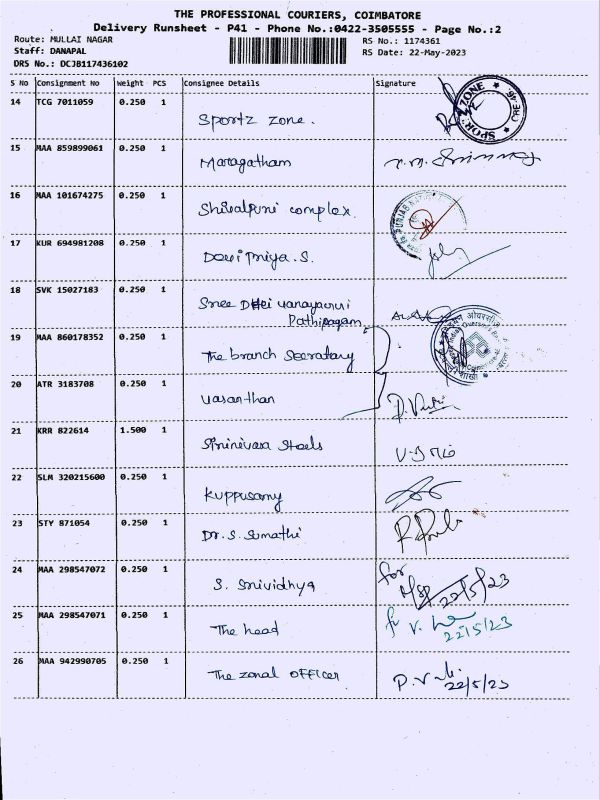 THE PROFESSIONAL COURIERS, COIMBATORE
Delivery Runsheet - P41 - Phone No.:0422-3505555 - Page No.:2
Route: MULLAI NAGAR
RS No.: 1174361
Staff: DANAPAL
RS Date: 22-May-2023
DRS No.: DCJB117436102
S No Consignment No Weight PCS Consignee Details Signature
14 TCG 7011059 0.250 1 Sportz zone.
SPORTZ ZONE
15 MAA 859899061 0.250 1 Maragatham
16 MAA 101674275 0.250 1 Shivalpuri complex
PUNJAB
17 KUR 694981208 0.250 1 Devi Priya. S.
18 SVK 15027183 0.250 1 Sree
Pathipagam
19 MAA 860178352 0.250 1 The branch Secratary
20 ATR 3183708 0.250 1 vasanthan
21 KRR 822614 1.500 1 Srinivasa Steels
22 SLM 320215600 0.250 1 Kuppusamy
23 STY 871054 0.250 1 Dr. S. Sumathi
24 MAA 298547072 0.250 1 S. Srividhya for 22/5/23
25 MAA 298547071 0.250 1 The head 22/5/23
26 MAA 942990705 0.250 1 The zonal officer 22/5/23